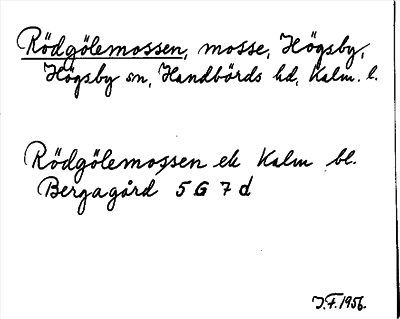 Rödgölemossen, mosse, Högsby,
Högsby sn, Handbörds hd, Kalm. l.
Rödgölemossen ek Kalm bl.
Bergagård 5 G 7 d
J.F. 1956.